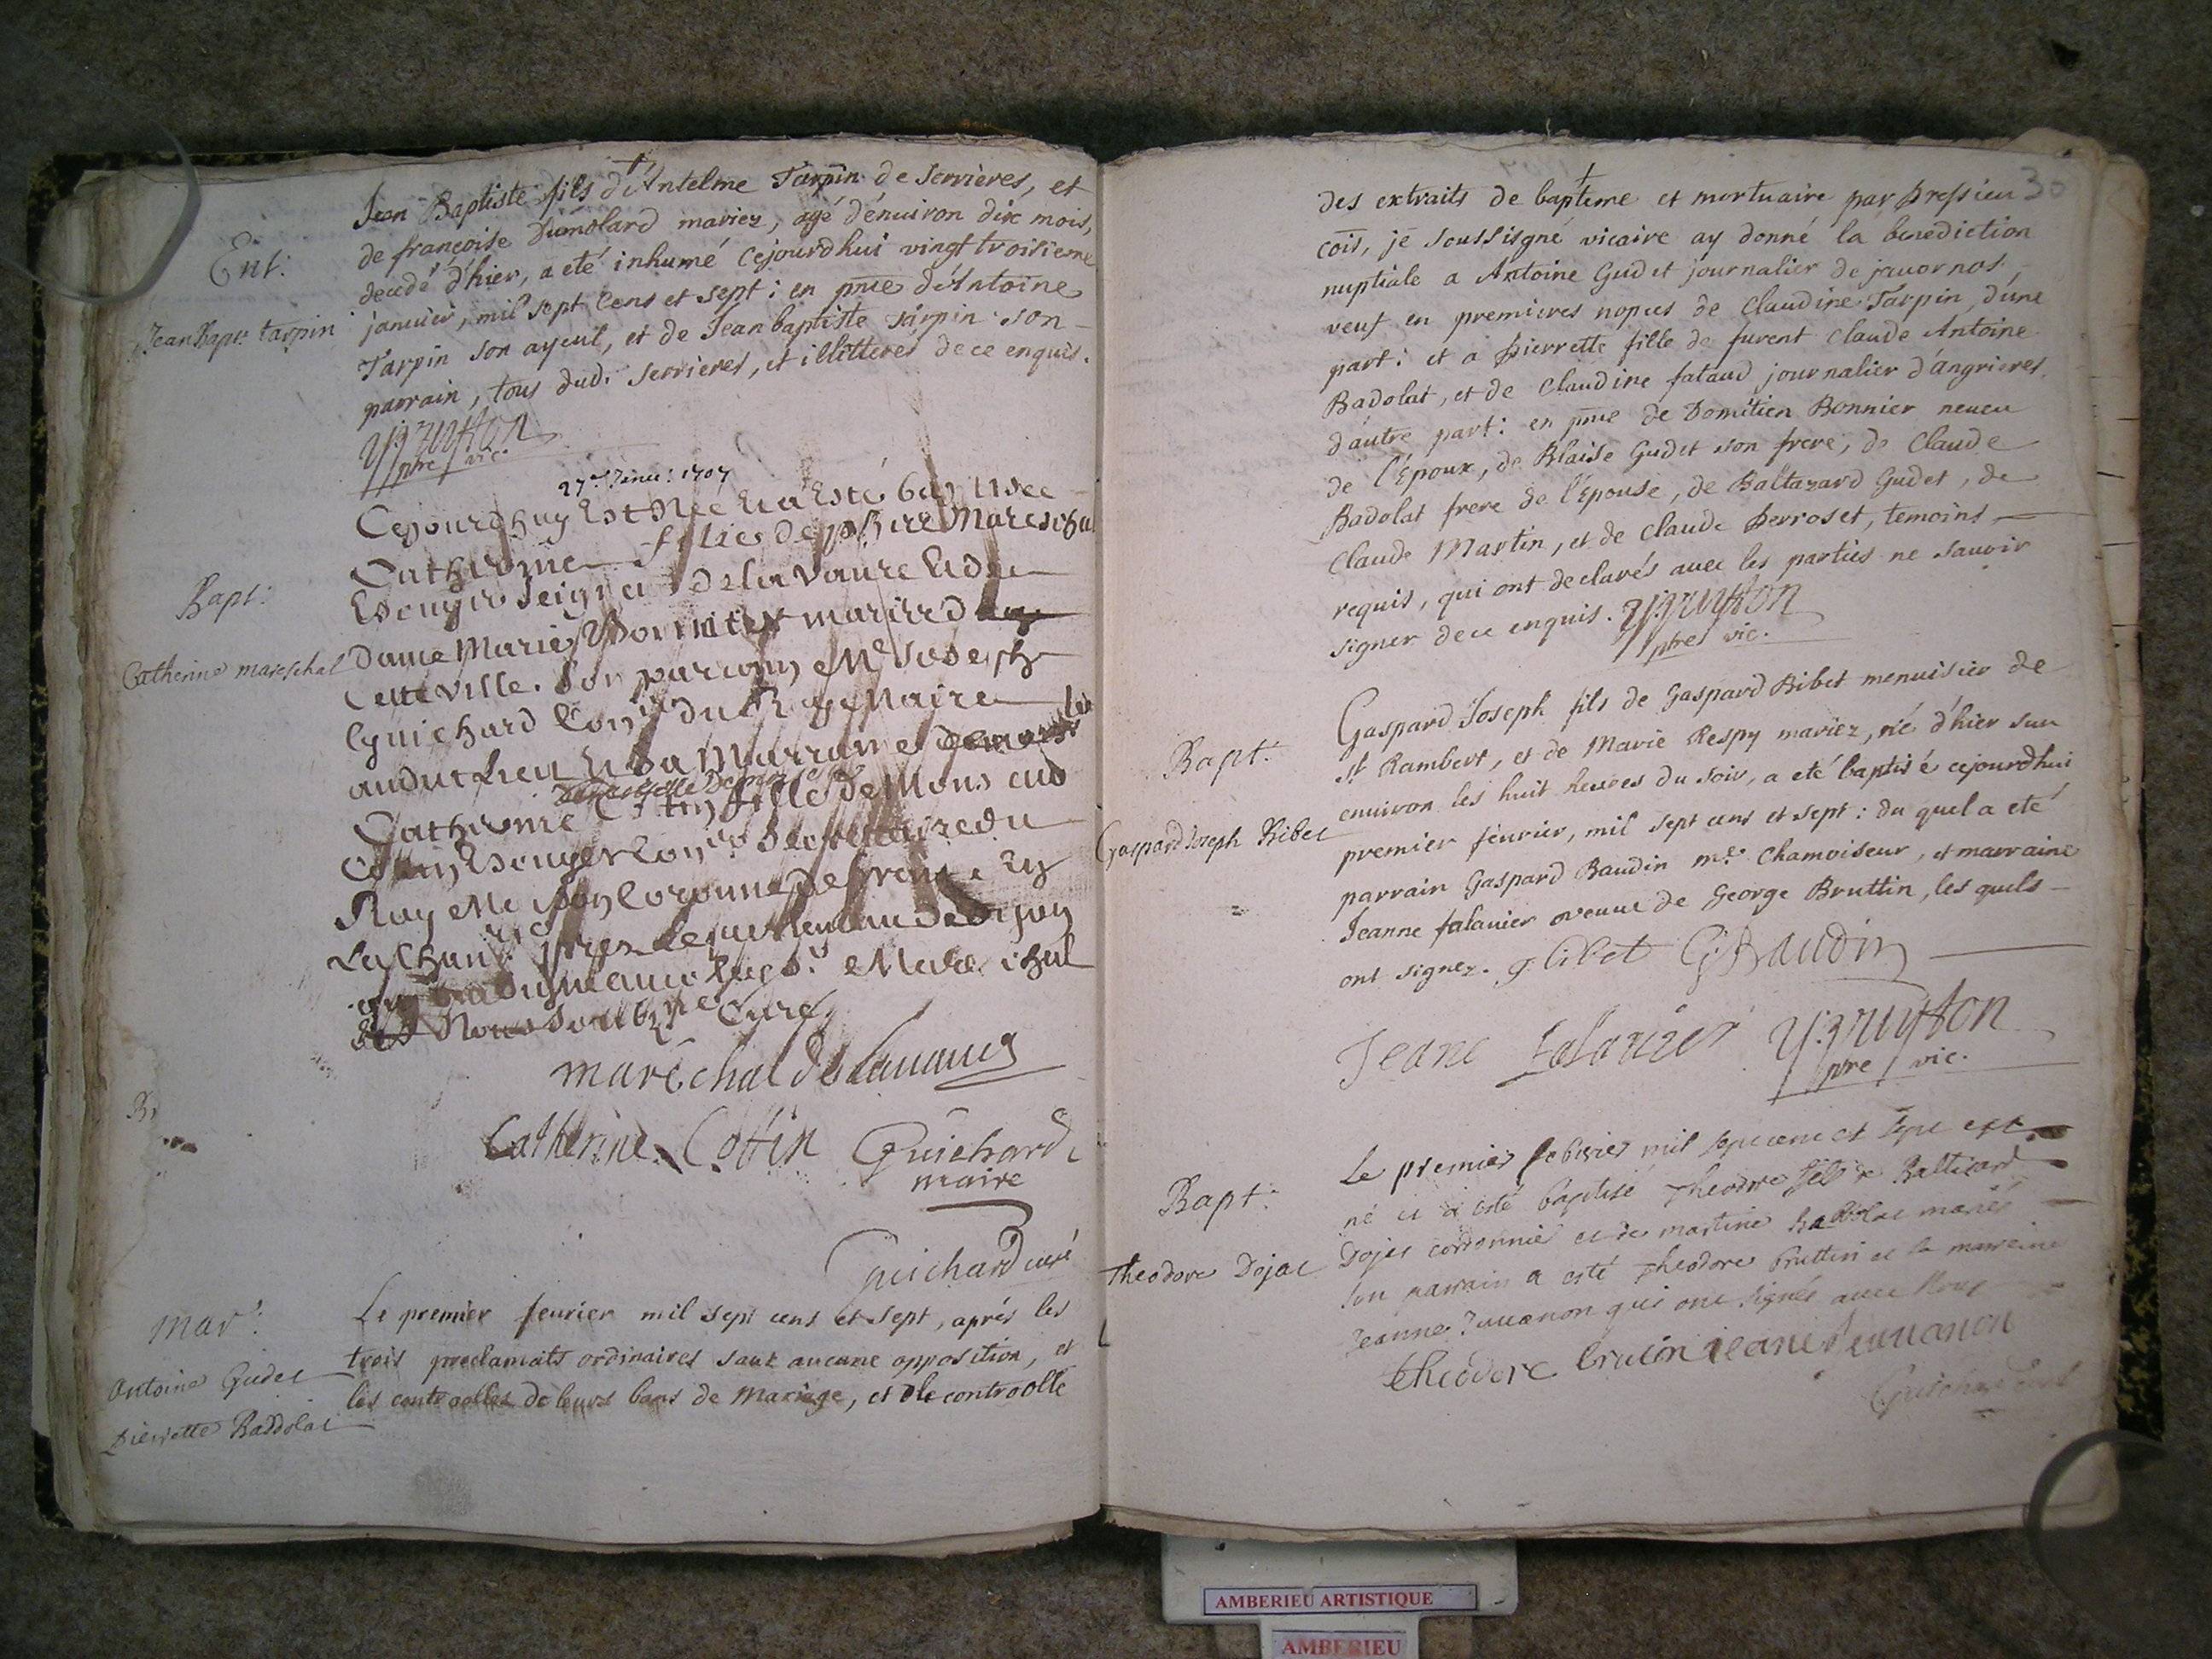 Ent:
Jean Bapt. tarpin
Jean Baptiste fils d'Antelme Tarpin de Serrières, et
de françoise Dumolard mariez, agé d'énuiron dix mois,
decédé d'hier, a eté inhumé cejourdhui vingt troisieme
januier, mil sept cens et sept: en pnce d'Antoine
Tarpin son ayeul, et de Jean baptiste Tarpin son
parrain, tous dud. Serrieres, et illitterés de ce enquis.
pbre vic.
Bapt:
Catherine mareschal
27e Janu: 1707
Cejourdhuy Est Née Et a Esté baptisee
Catherine fille de Marescha
Escuyer Seigr de la Vaure Et de
dame Marie mariez d
Cette ville. Son parrain Mr Joseph
Guichard Consr du Roy Maire
audit lieu Et Sa Marraine
Catherine Cottin fille de Mons
Cottin Escuyer Consr Secretaire du
Roy Couronne de france En
La Chanc. pres le parlement de Dijon
Marechal
Nous Curé
maréchal delauaure
Catherine Cottin Guichard
maire
Guichard curé
Mar:
Antoine Gudet
Pierrette Baddolat
Le premier feurier mil sept cens et sept, aprés les
trois proclamats ordinaires sans aucune opposition, et
les controolles de leurs bans de Mariage, et le controolle
30
des extraits de baptême et mortuaire par Pressieu
cois, je soussigné vicaire ay donné la benediction
nuptiale a Antoine Gudet journalier de jauornos,
veuf en premieres nopces de Claudine Tarpin, d'une
part: et a pierrette fille de furent Claude Antoine
Badolat, et de Claudine fataud journalier d'angrieres
d'autre part: en pnce de Domitien Bonnier neueu
de l'Époux, de Blaise Gudet son frere, de Claude
Badolat frere de l'épouse, de Baltazard Gudet, de
Claude Martin, et de Claude Perroset, temoins
requis, qui ont declarés auec les parties ne sauoir
signer de ce enquis.
pbre vic.
Bapt:
Gaspard Joseph Ribet
Gaspard Joseph fils de Gaspard Ribet menuisier de
St Rambert, et de Marie Respy mariez, né d'hier sur
enuiron les huit heures du soir, a eté baptisé cejourdhui
premier feurier, mil sept cens et sept: du quel a eté
parrain Gaspard Baudin me. Chamoiseur, et marraine
Jeanne falauier veuue de George Bruttin, les quels
ont signez. g Ribet G Baudin
Jeane falauier
pbre vic.
Bapt:
Theodore Dojat
Le premier febvrier mil sept cent et sept est
né et a esté baptisé Theodore fils de Baltisard
Dojat cordonnier et de martine badolat mariés
son parrain a esté Theodore bruttin et la marreine
Jeanne Juuanon qui ont signés auec Nous
theodore brutin jeane Juuanon
Guichard curé
AMBERIEU ARTISTIQUE
AMBERIEU